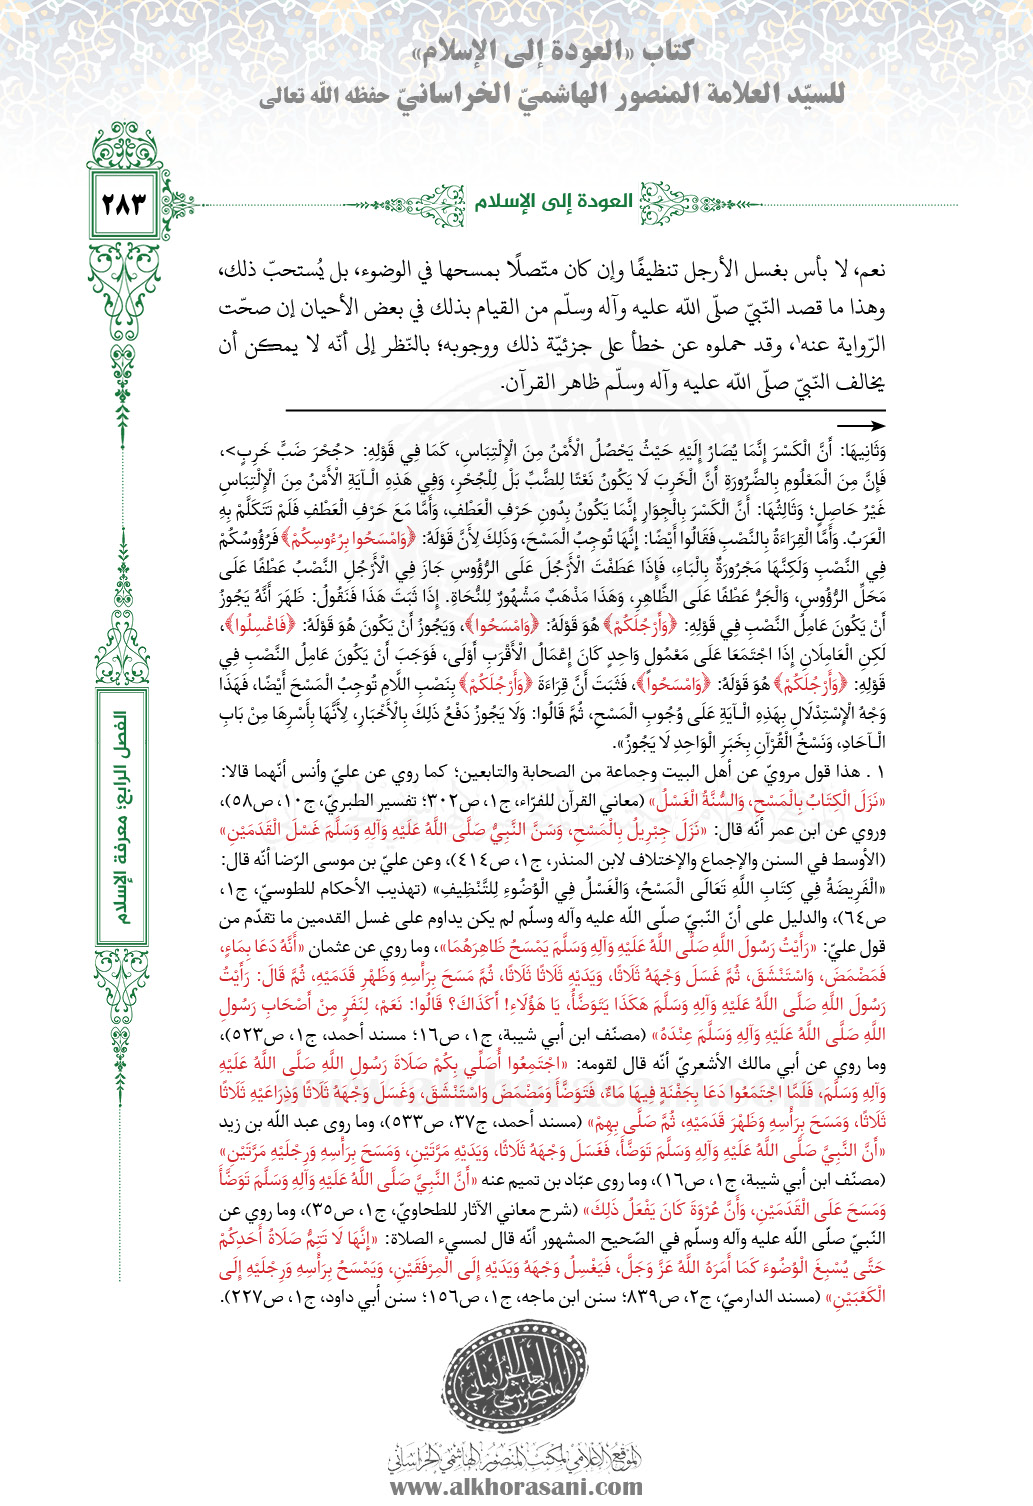 كتاب «العودة إلى الإسلام»
للسيّد العلامة المنصور الهاشميّ الخراسانيّ حفظه الله تعالى
٢٨٣
العودة إلى الإسلام
نعم، لا بأس بغسل الأرجل تنظيفًا وإن كان متّصلًا بمسحها في الوضوء، بل يُستحبّ ذلك،
وهذا ما قصد النّبيّ صلّى الله عليه وآله وسلّم من القيام بذلك في بعض الأحيان إن صحّت
الرّواية عنه١، وقد حملوه عن خطأ على جزئيّة ذلك ووجوبه؛ بالنّظر إلى أنّه لا يمكن أن
يخالف النّبيّ صلّى الله عليه وآله وسلّم ظاهر القرآن.
وَثَانِيهَا: أَنَّ الْكَسْرَ إِنَّمَا يُصَارُ إِلَيْهِ حَيْثُ يَحْصُلُ الْأَمْنُ مِنَ الْإِلْتِبَاسِ، كَمَا فِي قَوْلِهِ: <جُحْرَ ضَبٍّ خَرِبٍ>،
فَإِنَّ مِنَ الْمَعْلُومِ بِالضَّرُورَةِ أَنَّ الْخَرِبَ لَا يَكُونُ نَعْتًا لِلضَّبِّ بَلْ لِلْجُحْرِ، وَفِي هَذِهِ الْـآيَةِ الْأَمْنُ مِنَ الْإِلْتِبَاسِ
غَيْرُ حَاصِلٍ؛ وَثَالِثُهَا: أَنَّ الْكَسْرَ بِالْجِوَارِ إِنَّمَا يَكُونُ بِدُونِ حَرْفِ الْعَطْفِ، وَأَمَّا مَعَ حَرْفِ الْعَطْفِ فَلَمْ تَتَكَلَّمْ بِهِ
الْعَرَبُ. وَأَمَّا الْقِرَاءَةُ بِالنَّصْبِ فَقَالُوا أَيْضًا: إِنَّهَا تُوجِبُ الْمَسْحَ، وَذَلِكَ لِأَنَّ قَوْلَهُ: ﴿وَامْسَحُوا بِرُءُوسِكُمْ﴾ فَرُؤُوسُكُمْ
فِي النَّصْبِ وَلَكِنَّهَا مَجْرُورَةٌ بِالْبَاءِ، فَإِذَا عَطَفْتَ الْأَرْجُلَ عَلَى الرُّؤُوسِ جَازَ فِي الْأَرْجُلِ النَّصْبُ عَطْفًا عَلَى
مَحَلِّ الرُّؤُوسِ، وَالْجَرُّ عَطْفًا عَلَى الظَّاهِرِ، وَهَذَا مَذْهَبٌ مَشْهُورٌ لِلنُّحَاةِ. إِذَا ثَبَتَ هَذَا فَنَقُولُ: ظَهَرَ أَنَّهُ يَجُوزُ
أَنْ يَكُونَ عَامِلُ النَّصْبِ فِي قَوْلِهِ: ﴿وَأَرْجُلَكُمْ﴾ هُوَ قَوْلَهُ: ﴿وَامْسَحُوا﴾، وَيَجُوزُ أَنْ يَكُونَ هُوَ قَوْلَهُ: ﴿فَاغْسِلُوا﴾،
لَكِنِ الْعَامِلَانِ إِذَا اجْتَمَعَا عَلَى مَعْمُولٍ وَاحِدٍ كَانَ إِعْمَالُ الْأَقْرَبِ أَوْلَى، فَوَجَبَ أَنْ يَكُونَ عَامِلُ النَّصْبِ فِي
قَوْلِهِ: ﴿وَأَرْجُلَكُمْ﴾ هُوَ قَوْلَهُ: ﴿وَامْسَحُوا﴾، فَثَبَتَ أَنَّ قِرَاءَةَ ﴿وَأَرْجُلَكُمْ﴾ بِنَصْبِ اللَّامِ تُوجِبُ الْمَسْحَ أَيْضًا، فَهَذَا
وَجْهُ الْإِسْتِدْلَالِ بِهَذِهِ الْـآيَةِ عَلَى وُجُوبِ الْمَسْحِ، ثُمَّ قَالُوا: وَلَا يَجُوزُ دَفْعُ ذَلِكَ بِالْأَخْبَارِ، لِأَنَّهَا بِأَسْرِهَا مِنْ بَابِ
الْـآحَادِ، وَنَسْخُ الْقُرْآنِ بِخَبَرِ الْوَاحِدِ لَا يَجُوزُ».
١ . هذا قول مرويّ عن أهل البيت وجماعة من الصحابة والتابعين؛ كما روي عن عليّ وأنس أنّهما قالا:
«نَزَلَ الْكِتَابُ بِالْمَسْحِ، وَالسُّنَّةُ الْغَسْلُ» (معاني القرآن للفرّاء، ج١، ص٣٠٢؛ تفسير الطبريّ، ج١٠، ص٥٨)،
وروي عن ابن عمر أنّه قال: «نَزَلَ جِبْرِيلُ بِالْمَسْحِ، وَسَنَّ النَّبِيُّ صَلَّى اللَّهُ عَلَيْهِ وَآلِهِ وَسَلَّمَ غَسْلَ الْقَدَمَيْنِ»
(الأوسط في السنن والإجماع والإختلاف لابن المنذر، ج١، ص٤١٤)، وعن عليّ بن موسى الرّضا أنّه قال:
«الْفَرِيضَةُ فِي كِتَابِ اللَّهِ تَعَالَى الْمَسْحُ، وَالْغَسْلُ فِي الْوُضُوءِ لِلتَّنْظِيفِ» (تهذيب الأحكام للطوسيّ، ج١،
ص٦٤)، والدليل على أنّ النّبيّ صلّى الله عليه وآله وسلّم لم يكن يداوم على غسل القدمين ما تقدّم من
قول عليّ: «رَأَيْتُ رَسُولَ اللَّهِ صَلَّى اللَّهُ عَلَيْهِ وَآلِهِ وَسَلَّمَ يَمْسَحُ ظَاهِرَهُمَا»، وما روي عن عثمان «أَنَّهُ دَعَا بِمَاءٍ،
فَمَضْمَضَ، وَاسْتَنْشَقَ، ثُمَّ غَسَلَ وَجْهَهُ ثَلَاثًا، وَيَدَيْهِ ثَلَاثًا ثَلَاثًا، ثُمَّ مَسَحَ بِرَأْسِهِ وَظَهْرِ قَدَمَيْهِ، ثُمَّ قَالَ: رَأَيْتُ
رَسُولَ اللَّهِ صَلَّى اللَّهُ عَلَيْهِ وَآلِهِ وَسَلَّمَ هَكَذَا يَتَوَضَّأُ، يَا هَؤُلَاءِ! أَكَذَاكَ؟ قَالُوا: نَعَمْ، لِنَفَرٍ مِنْ أَصْحَابِ رَسُولِ
اللَّهِ صَلَّى اللَّهُ عَلَيْهِ وَآلِهِ وَسَلَّمَ عِنْدَهُ» (مصنّف ابن أبي شيبة، ج١، ص١٦؛ مسند أحمد، ج١، ص٥٢٣)،
وما روي عن أبي مالك الأشعريّ أنّه قال لقومه: «اجْتَمِعُوا أُصَلِّي بِكُمْ صَلَاةَ رَسُولِ اللَّهِ صَلَّى اللَّهُ عَلَيْهِ
وَآلِهِ وَسَلَّمَ، فَلَمَّا اجْتَمَعُوا دَعَا بِجَفْنَةٍ فِيهَا مَاءٌ، فَتَوَضَّأَ وَمَضْمَضَ وَاسْتَنْشَقَ، وَغَسَلَ وَجْهَهُ ثَلَاثًا وَذِرَاعَيْهِ ثَلَاثًا
ثَلَاثًا، وَمَسَحَ بِرَأْسِهِ وَظَهْرَ قَدَمَيْهِ، ثُمَّ صَلَّى بِهِمْ» (مسند أحمد، ج٣٧، ص٥٣٣)، وما روى عبد الله بن زيد
«أَنَّ النَّبِيَّ صَلَّى اللَّهُ عَلَيْهِ وَآلِهِ وَسَلَّمَ تَوَضَّأَ، فَغَسَلَ وَجْهَهُ ثَلَاثًا، وَيَدَيْهِ مَرَّتَيْنِ، وَمَسَحَ بِرَأْسِهِ وَرِجْلَيْهِ مَرَّتَيْنِ»
(مصنّف ابن أبي شيبة، ج١، ص١٦)، وما روى عبّاد بن تميم عنه «أَنَّ النَّبِيَّ صَلَّى اللَّهُ عَلَيْهِ وَآلِهِ وَسَلَّمَ تَوَضَّأَ
وَمَسَحَ عَلَى الْقَدَمَيْنِ، وَأَنَّ عُرْوَةَ كَانَ يَفْعَلُ ذَلِكَ» (شرح معاني الآثار للطحاويّ، ج١، ص٣٥)، وما روي عن
النّبيّ صلّى الله عليه وآله وسلّم في الصّحيح المشهور أنّه قال لمسيء الصلاة: «إِنَّهَا لَا تَتِمُّ صَلَاةُ أَحَدِكُمْ
حَتَّى يُسْبِغَ الْوُضُوءَ كَمَا أَمَرَهُ اللَّهُ عَزَّ وَجَلَّ، فَيَغْسِلُ وَجْهَهُ وَيَدَيْهِ إِلَى الْمِرْفَقَيْنِ، وَيَمْسَحُ بِرَأْسِهِ وَرِجْلَيْهِ إِلَى
الْكَعْبَيْنِ» (مسند الدارميّ، ج٢، ص٨٣٩؛ سنن ابن ماجه، ج١، ص١٥٦؛ سنن أبي داود، ج١، ص٢٢٧).
الفصل الرابع؛ معرفة الإسلام
المنصور الهاشمي الخراساني
الموقع الإعلامي لمكتب المنصور الهاشمي الخراساني
www.alkhorasani.com